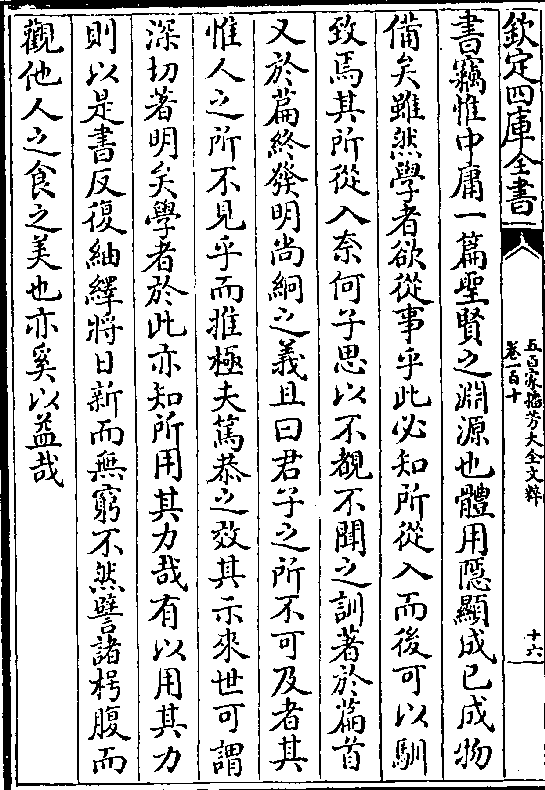 欽定四庫全書
五百家播芳大全文粹
卷一百十
十六
書竊惟中庸一篇聖賢之淵源也體用隱顯成已成物
備矣雖然學者欲從事乎此必知所從入而後可以馴
致焉其所從入奈何子思以不覩不聞之訓著於篇首
又於篇終發明尚絅之義且曰君子之所不可及者其
惟人之所不見乎而推極夫篤恭之效其示來世可謂
深切著明矣學者於此亦知所用其力哉有以用其力
則以是書反復紬繹將日新而無窮不然譬諸枵腹而
觀他人之食之美也亦奚以益哉